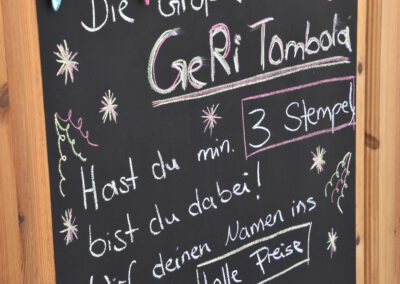 Die
GeRi Tombola
Hast du min. 3 Stempel
bist du dabei!
Wirf deinen Namen ins
tolle Preise